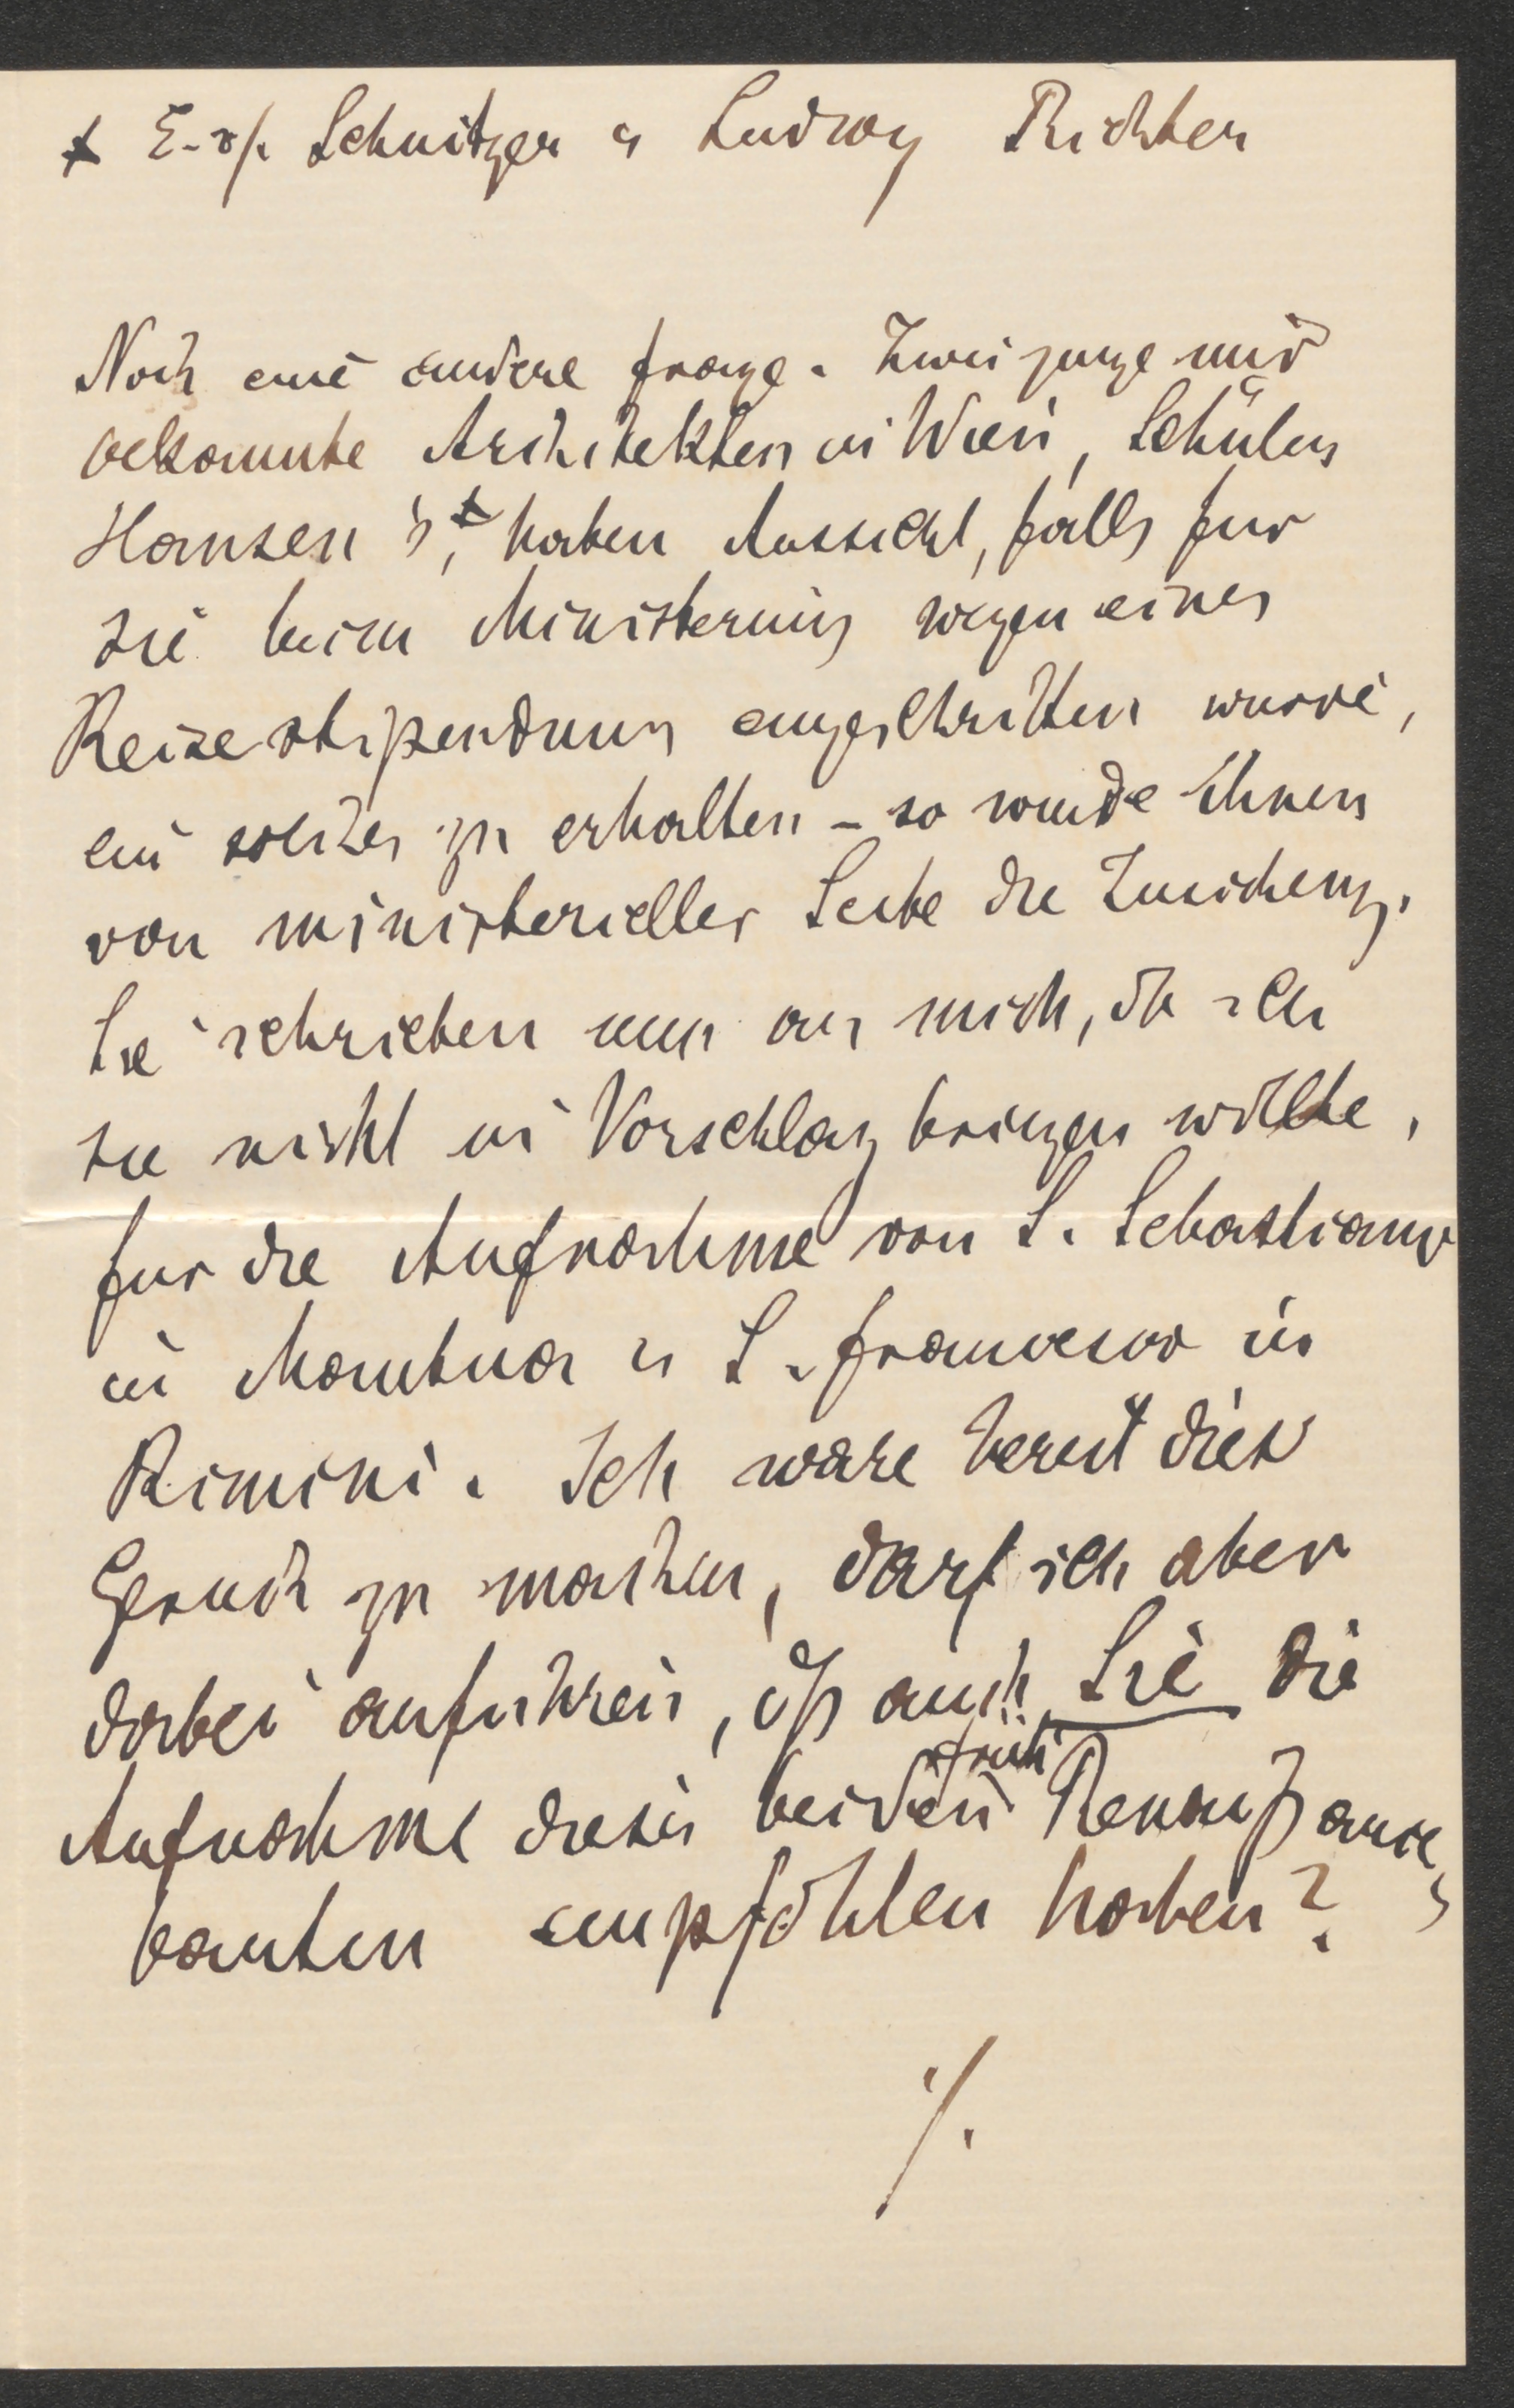 Schnitzer u Ludwig Richter
Noch eine andere Frage. Zwei junge mir
bekannte Architekten in Wien, Schüler
Hansen's, haben Aussicht, falls für
sie beim Ministerium wegen eines
Reisestipendiums eingeschritten wurde,
ein solches zu erhalten – so wurde ihnen
von ministerieller Seite die Zusicherg.
Sie schrieben nun an mich, ob ich
sie nicht in Vorschlag bringen wollte,
für die Aufnahme von S. Sebastiano
in Mantua u S. Francesco in
Rimini. Ich wäre bereit dies
Gesuch zu machen, darf ich aber
dabei anführen, dß auch Sie die
Aufnahme dieser beiden früh Renaißance
bauten empfohlen haben?
./.